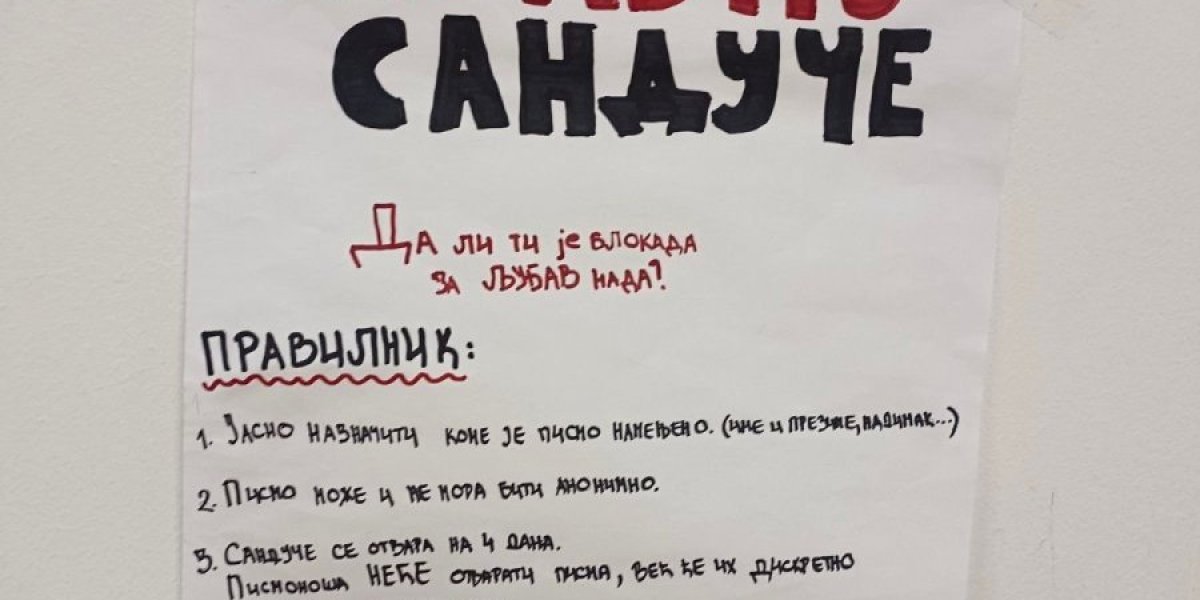 САНДУЧЕ
Да ли ти је блокада
за љубав нада?
ПРАВИЛНИК:
1. Јасно назначити коме је писмо намењено. (име и презиме, надимак...)
2. Писмо може и не мора бити анонимно.
3. Сандуче се отвара на 4 дана.
Писмоноша НЕЋЕ отварати писма, већ ће их дискретно